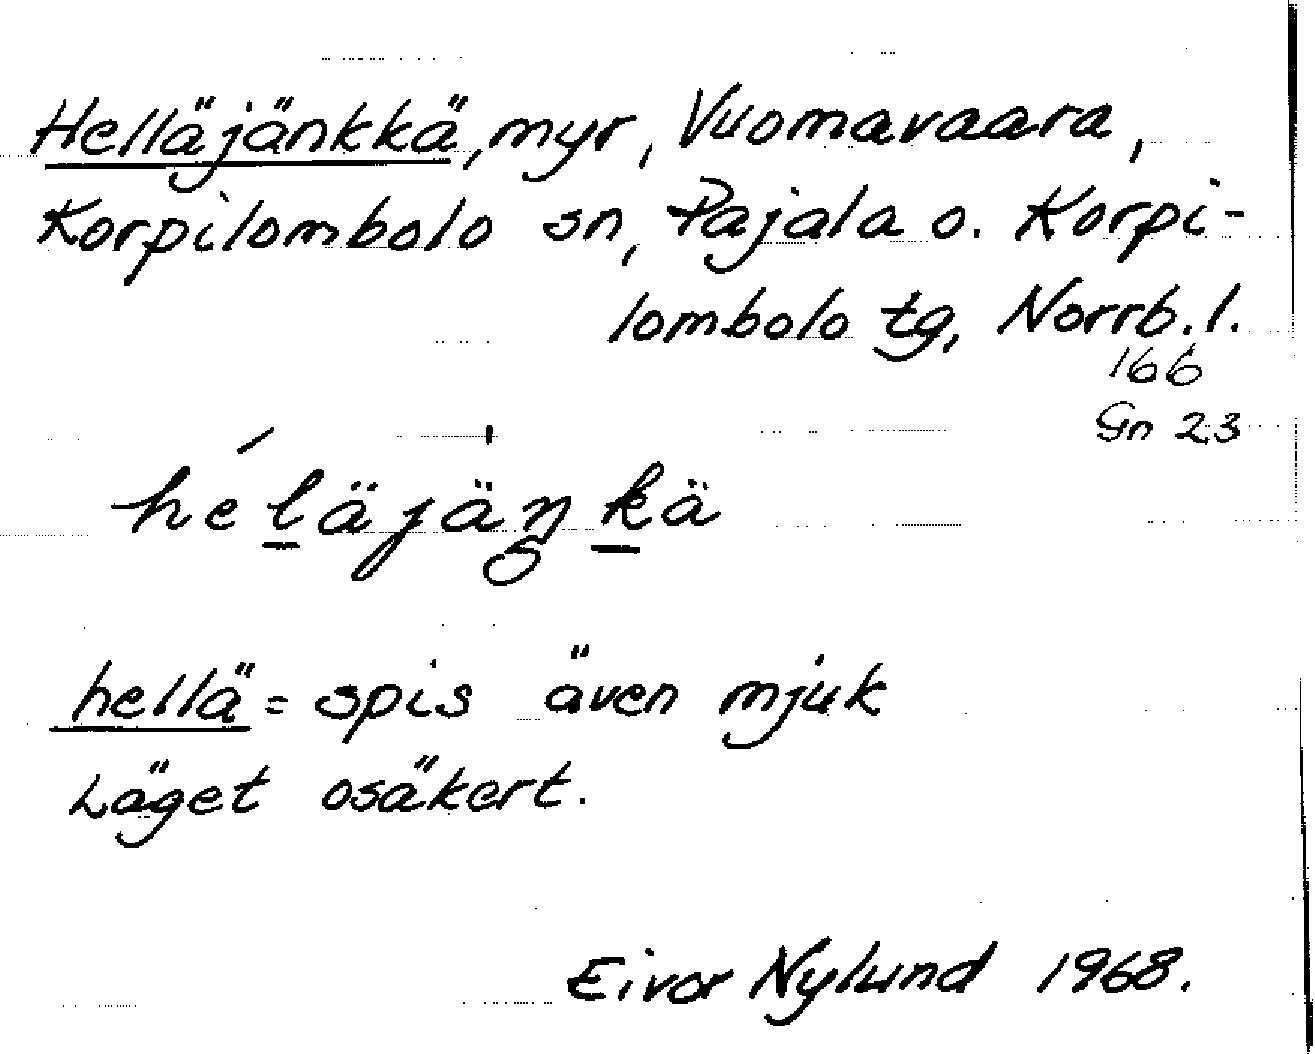 Helläjänkkä, myr, Vuomavaara,
Korpilombolo sn, Pajala o. Korpi-
lombolo tg, Norrb. l.
166
Gn 23
heläjäŋkä
hellä = spis även mjuk
Läget osäkert.
Eivor Nylund 1968.